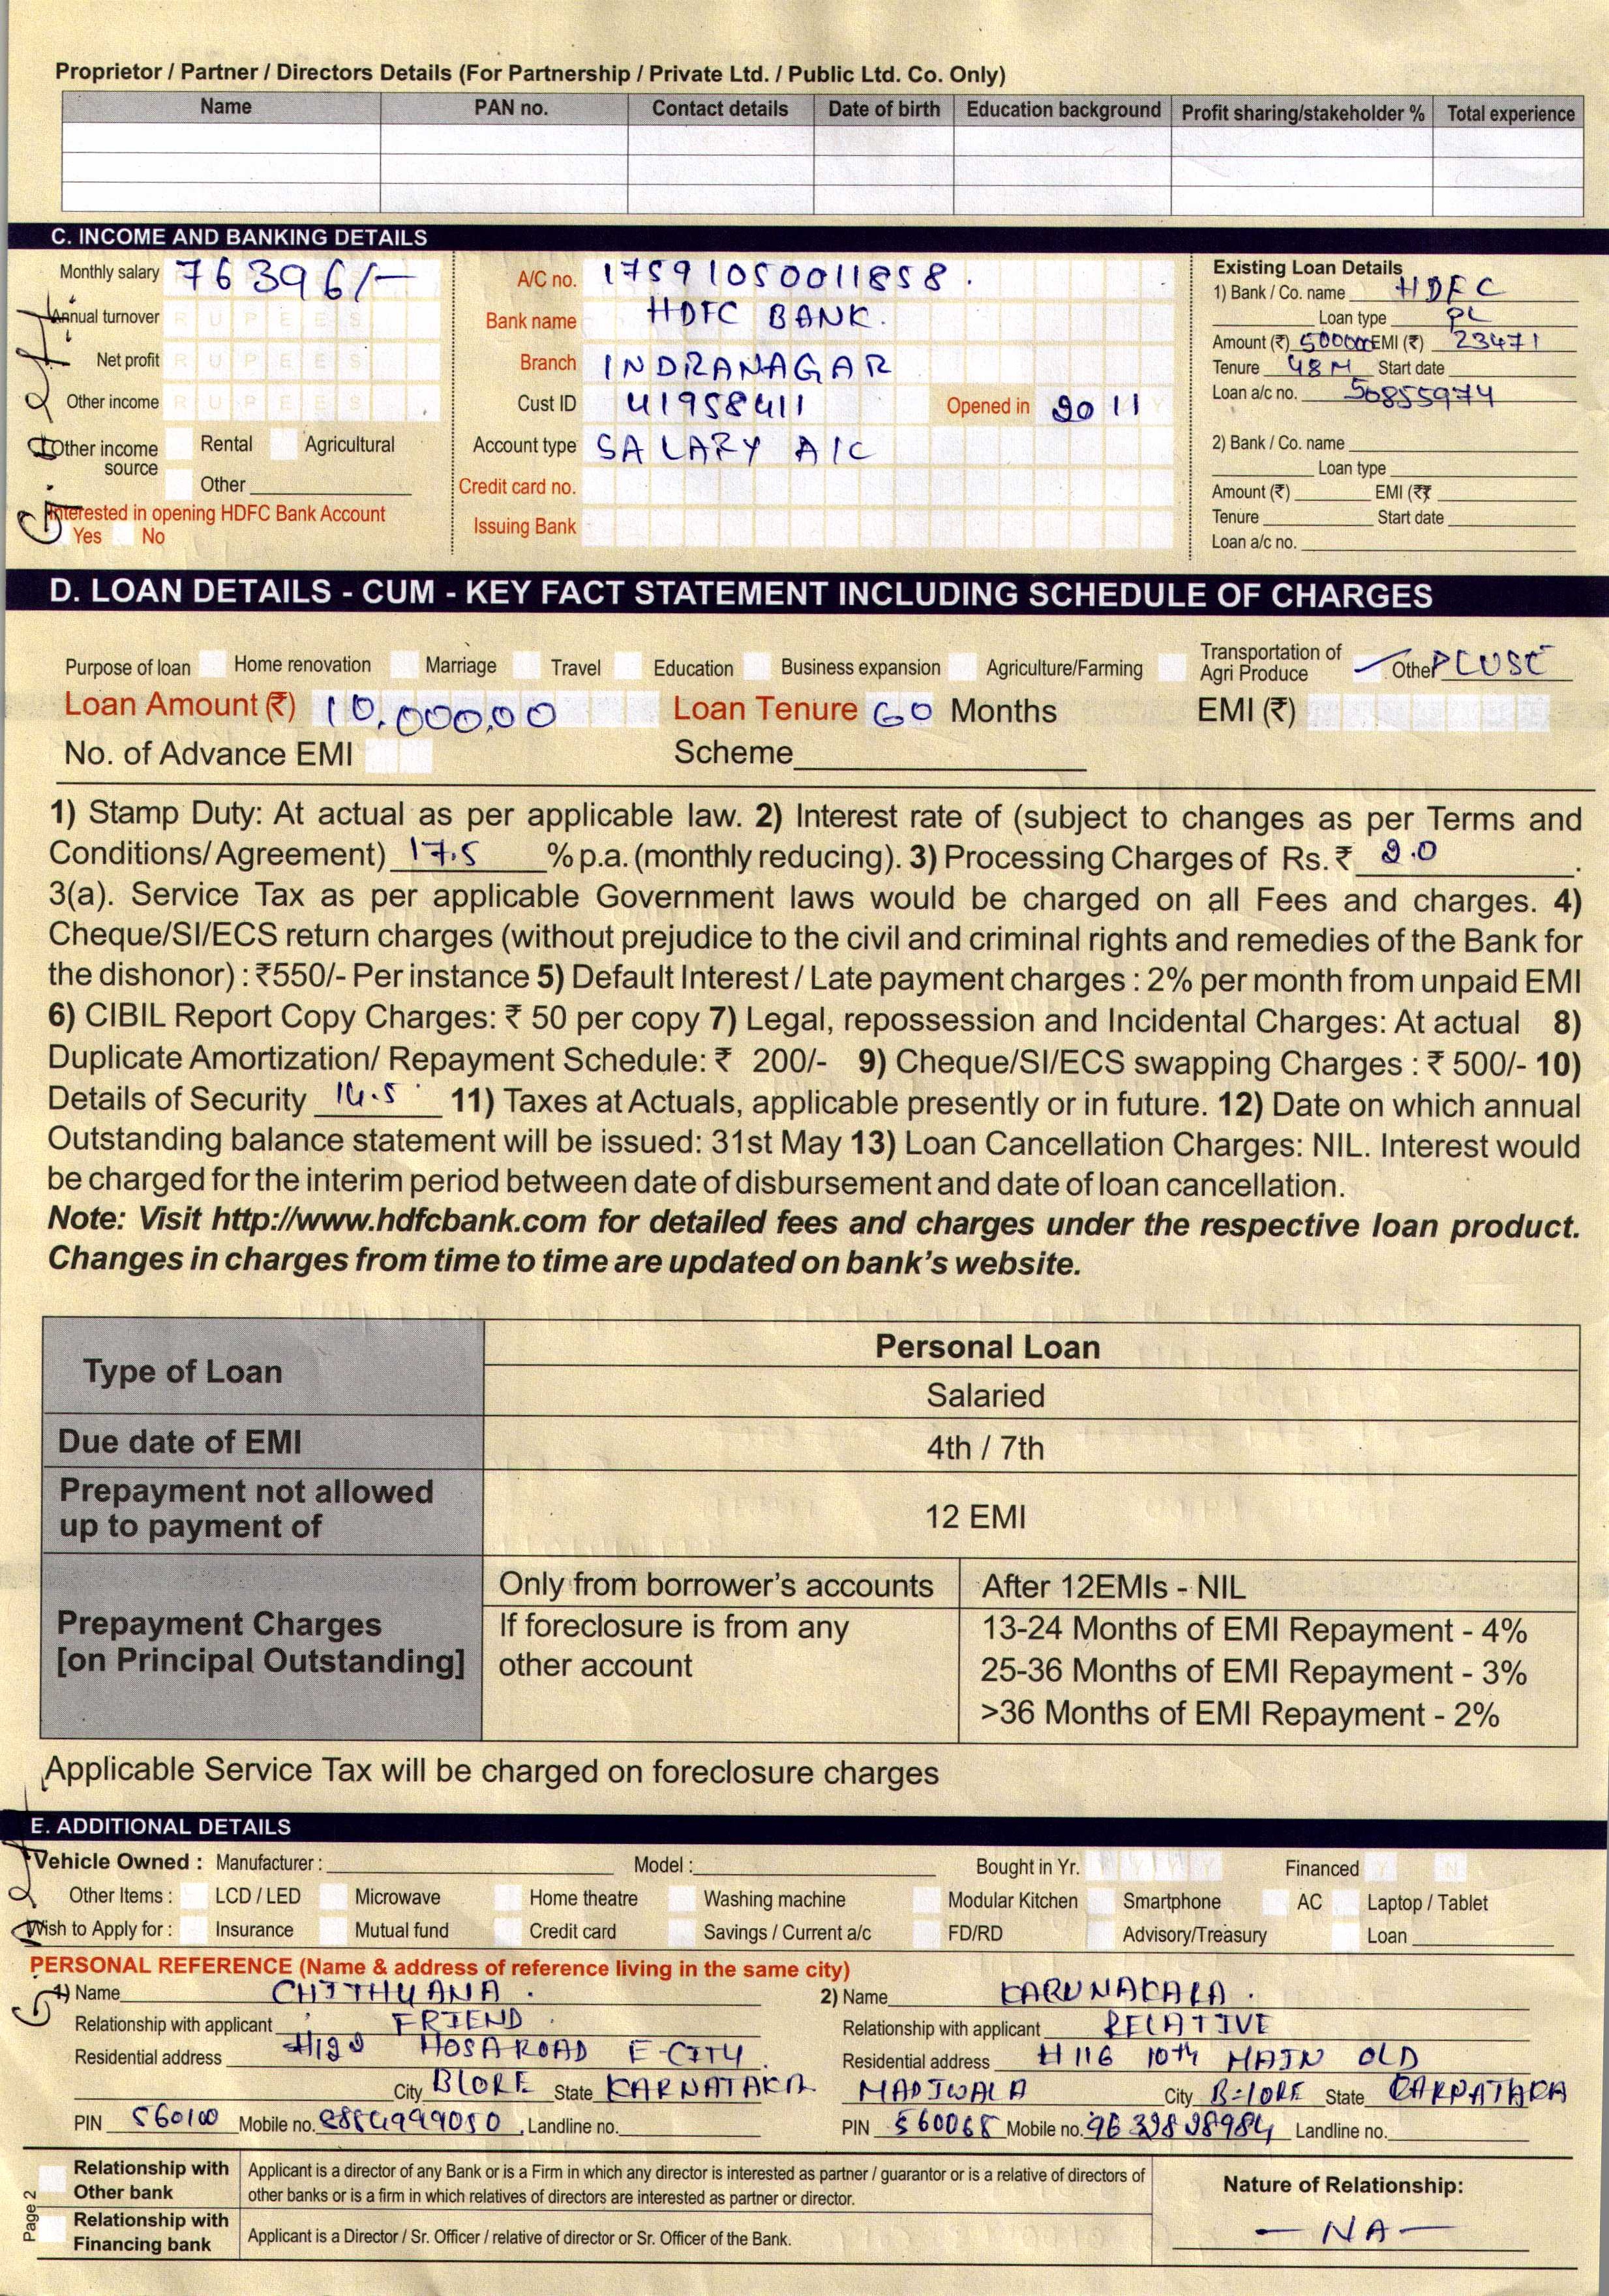 Proprietor / Partner / Directors Details (For Partnership / Private Ltd. / Public Ltd. Co. Only)
Name PAN no. Contact details Date of birth Education background Profit sharing/stakeholder % Total experience
C. INCOME AND BANKING DETAILS
Monthly salary 76396/-
Annual turnover RUPEES
Net profit RUPEES
Other income RUPEES
Other income source Rental Agricultural
Other
Interested in opening HDFC Bank Account
Yes No
A/C no. 17591050011858.
Bank name HDFC BANK.
Branch INDRANAGAR
Cust ID 41958411 Opened in 2011
Account type SALARY A/C
Credit card no.
Issuing Bank
Existing Loan Details
1) Bank / Co. name HDFC
Loan type PL
Amount (₹) 500000 EMI (₹) 23471
Tenure 48M Start date
Loan a/c no. 50855974
2) Bank / Co. name
Loan type
Amount (₹) EMI (₹
Tenure Start date
Loan a/c no.
D. LOAN DETAILS - CUM - KEY FACT STATEMENT INCLUDING SCHEDULE OF CHARGES
Purpose of loan Home renovation Marriage Travel Education Business expansion Agriculture/Farming Transportation of Agri Produce Other PLUSE
Loan Amount (₹) 10,000,00 Loan Tenure 60 Months EMI (₹)
No. of Advance EMI Scheme
1) Stamp Duty: At actual as per applicable law. 2) Interest rate of (subject to changes as per Terms and
Conditions/Agreement) 17.5 % p.a. (monthly reducing). 3) Processing Charges of Rs. ₹ 2.0 .
3(a). Service Tax as per applicable Government laws would be charged on all Fees and charges. 4)
Cheque/SI/ECS return charges (without prejudice to the civil and criminal rights and remedies of the Bank for
the dishonor) : ₹550/- Per instance 5) Default Interest / Late payment charges : 2% per month from unpaid EMI
6) CIBIL Report Copy Charges: ₹ 50 per copy 7) Legal, repossession and Incidental Charges: At actual 8)
Duplicate Amortization/ Repayment Schedule: ₹ 200/- 9) Cheque/SI/ECS swapping Charges : ₹ 500/- 10)
Details of Security 14.5 11) Taxes at Actuals, applicable presently or in future. 12) Date on which annual
Outstanding balance statement will be issued: 31st May 13) Loan Cancellation Charges: NIL. Interest would
be charged for the interim period between date of disbursement and date of loan cancellation.
Note: Visit http://www.hdfcbank.com for detailed fees and charges under the respective loan product.
Changes in charges from time to time are updated on bank's website.
Type of Loan Personal Loan
Salaried
Due date of EMI 4th / 7th
Prepayment not allowed up to payment of 12 EMI
Prepayment Charges [on Principal Outstanding]
Only from borrower's accounts After 12EMIs - NIL
If foreclosure is from any other account 13-24 Months of EMI Repayment - 4%
25-36 Months of EMI Repayment - 3%
>36 Months of EMI Repayment - 2%
Applicable Service Tax will be charged on foreclosure charges
E. ADDITIONAL DETAILS
Vehicle Owned : Manufacturer : Model : Bought in Yr. Y Y Y Y Financed Y N
Other Items : LCD / LED Microwave Home theatre Washing machine Modular Kitchen Smartphone AC Laptop / Tablet
Wish to Apply for : Insurance Mutual fund Credit card Savings / Current a/c FD/RD Advisory/Treasury Loan
PERSONAL REFERENCE (Name & address of reference living in the same city)
1) Name CHITHYANA .
Relationship with applicant FRIEND
Residential address #120 HOSAROAD E-CITY
City BLORE State KARNATAKA
PIN 560100 Mobile no. Landline no.
2) Name KARUNAKALA .
Relationship with applicant RELATIVE
Residential address #116 10th MAIN OLD
MADIWALA City B=lORE State KARNATAKA
PIN 560068 Mobile no. Landline no.
Relationship with Other bank Applicant is a director of any Bank or is a Firm in which any director is interested as partner / guarantor or is a relative of directors of
other banks or is a firm in which relatives of directors are interested as partner or director.
Relationship with Financing bank Applicant is a Director / Sr. Officer / relative of director or Sr. Officer of the Bank.
Nature of Relationship:
- NA -
Page 2